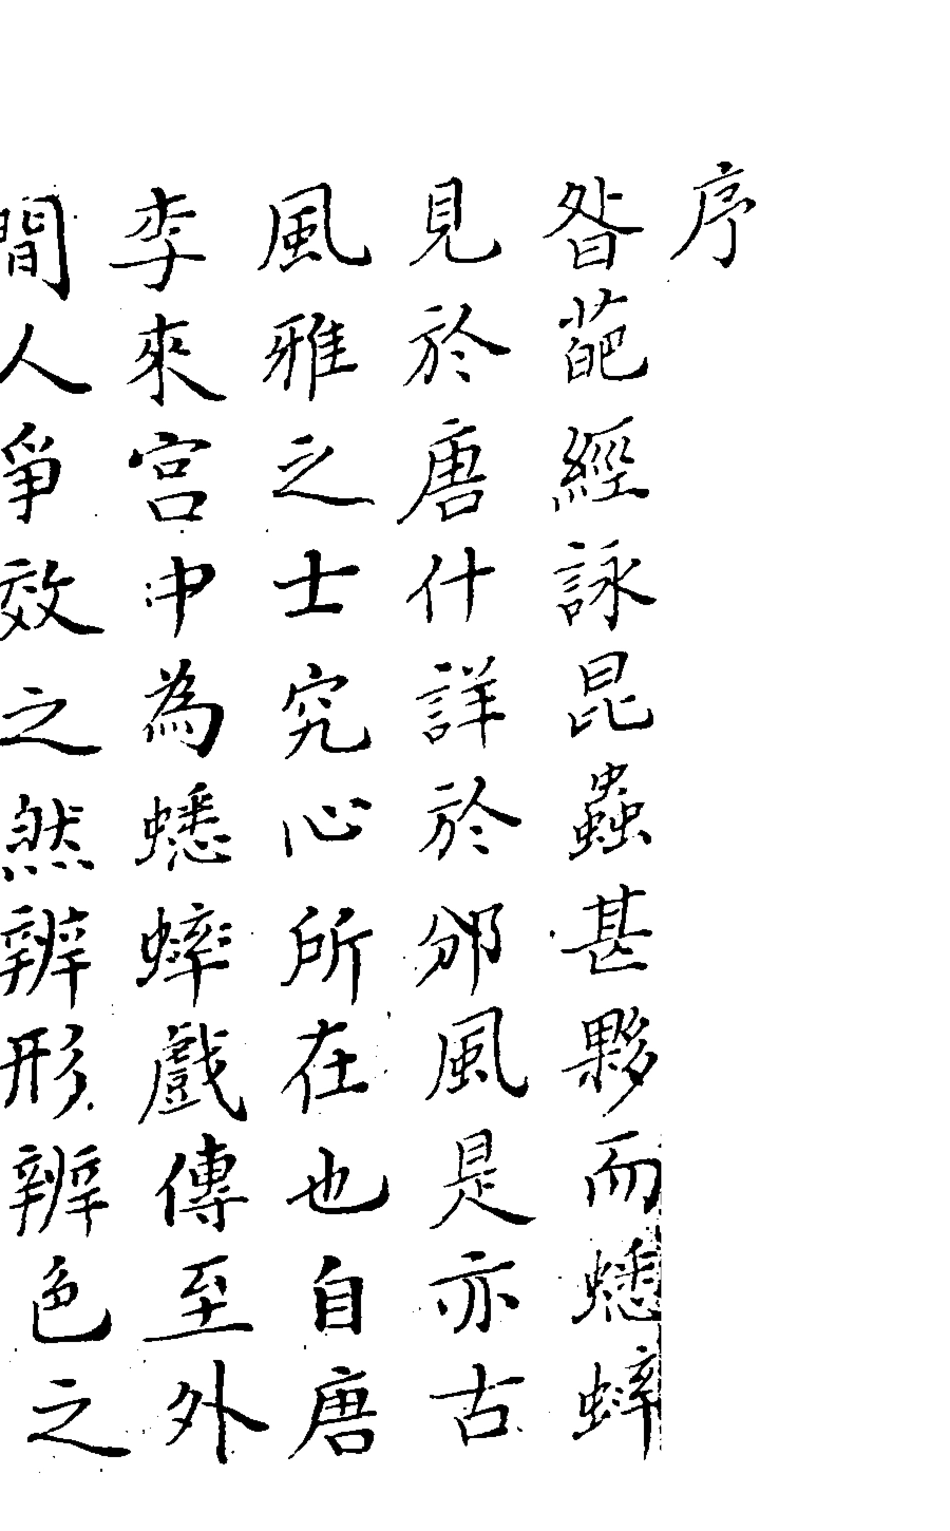 序
昝葩經詠昆蟲甚夥而蟋蟀
見於唐什詳於邠風是亦古
風雅之士究心所在也自唐
李來宮中為蟋蟀戲傳至外
間人爭效之然辨形辨色之